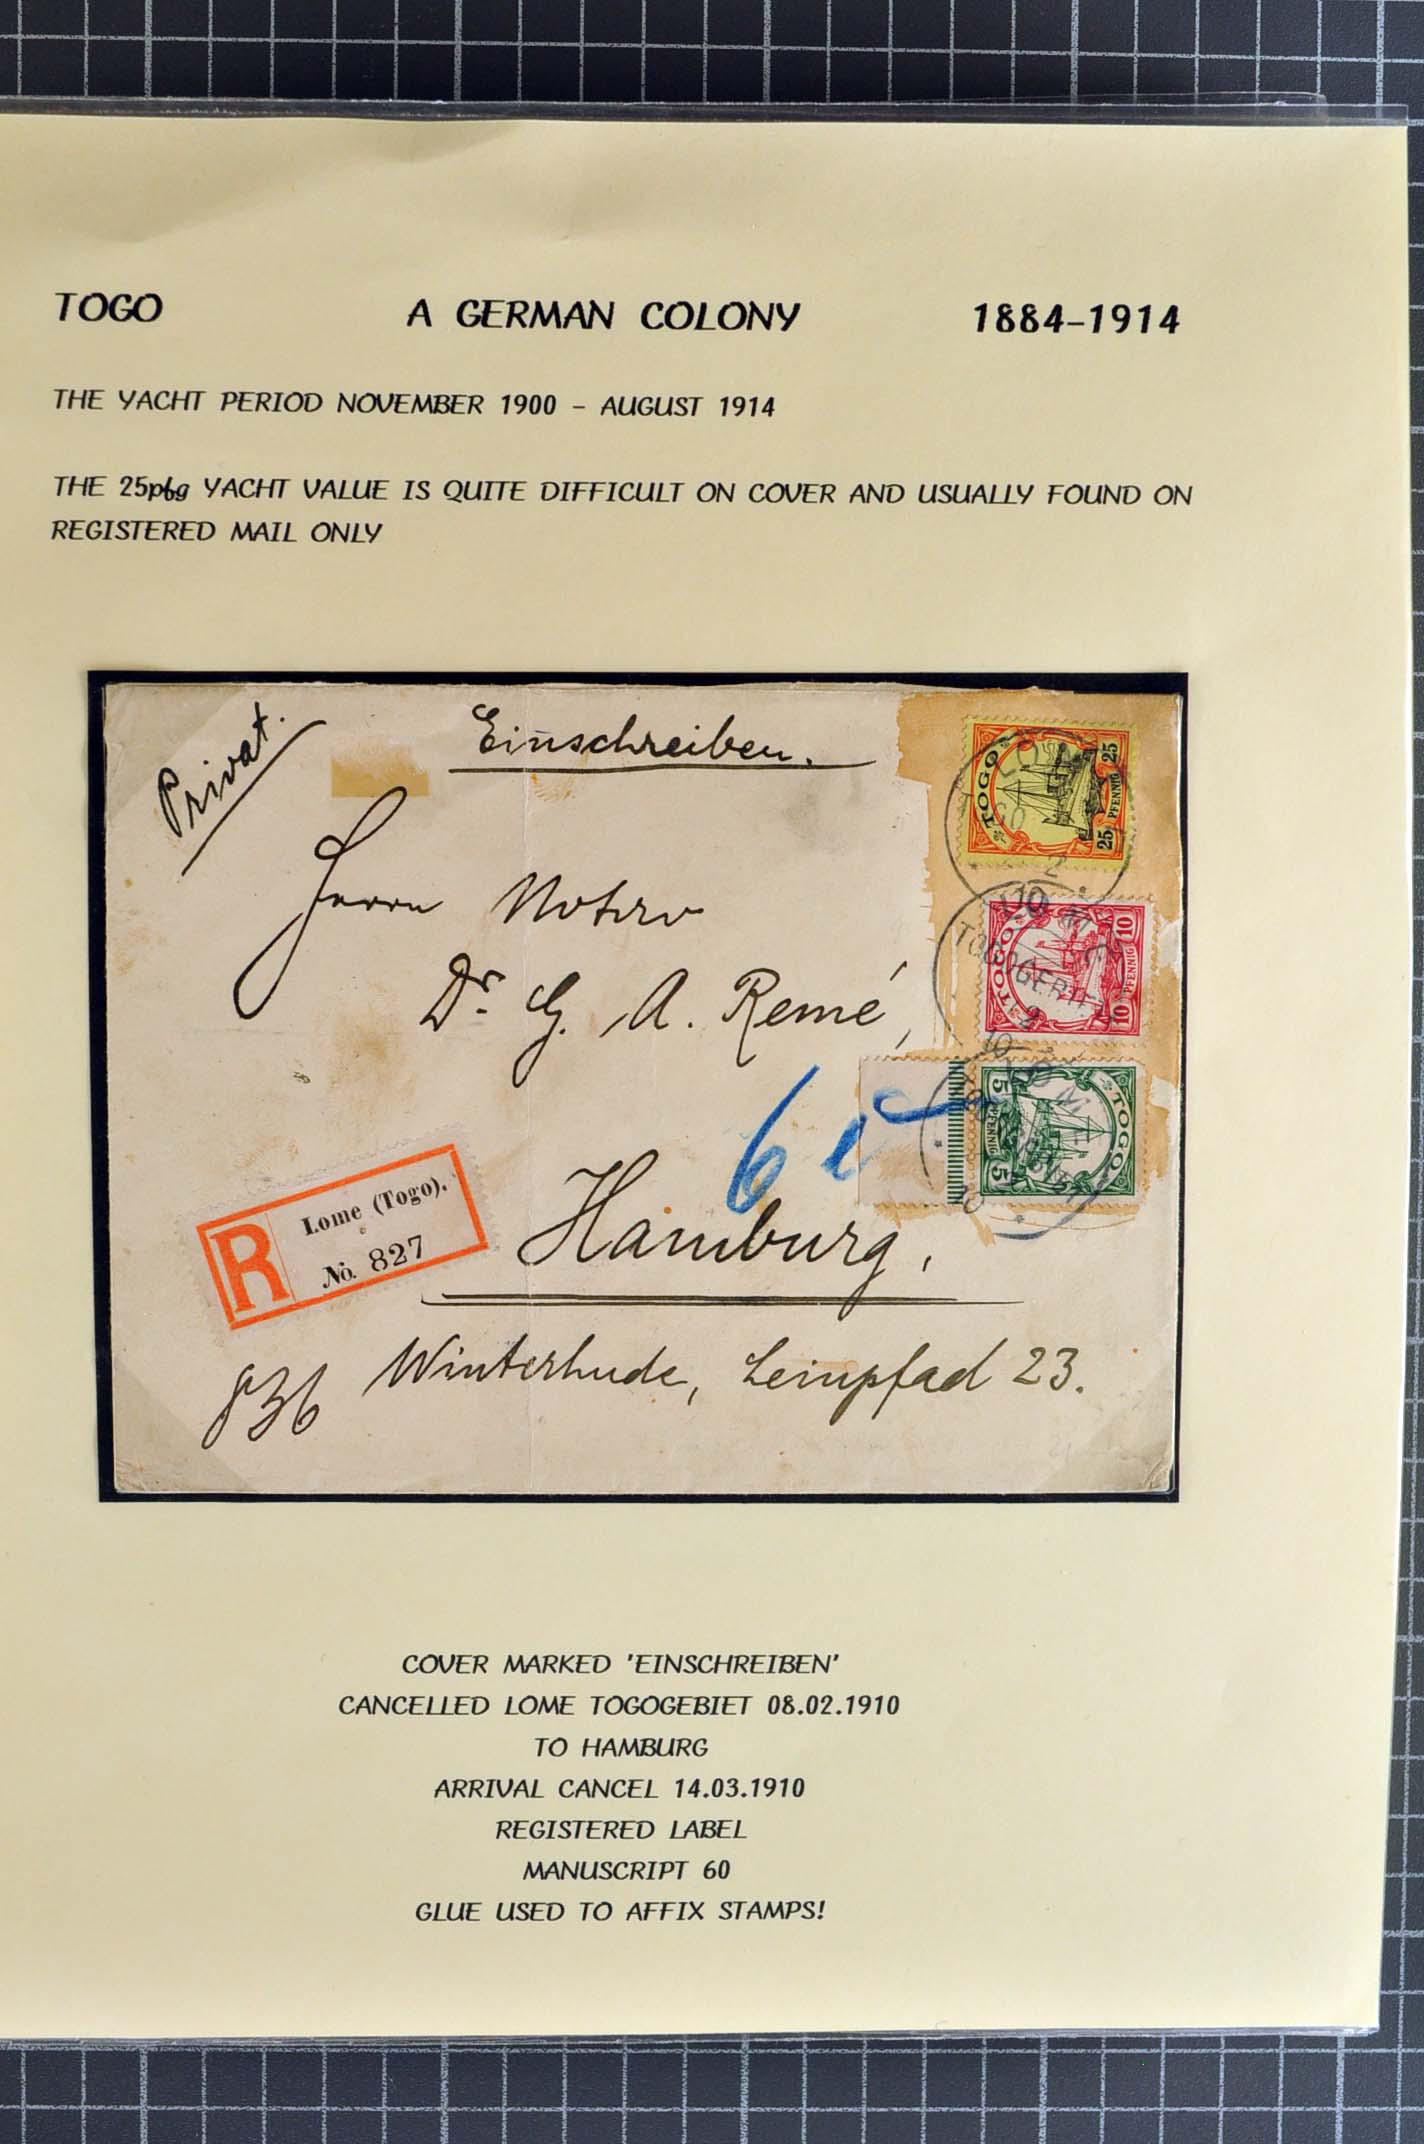 TOGO A GERMAN COLONY 1884-1914
THE YACHT PERIOD NOVEMBER 1900 - AUGUST 1914
THE 25pfg YACHT VALUE IS QUITE DIFFICULT ON COVER AND USUALLY FOUND ON
REGISTERED MAIL ONLY
Privat.
Einschreiben.
TOGO
25 PFENNIG 25
Herrn Notar
Dr. G. A. Remé,
TOGO
10 PFENNIG 10
TOGO
5 PFENNIG 5
60
R Lome (Togo).
No. 827
Hamburg,
Winterhude, Leinpfad 23.
836
COVER MARKED 'EINSCHREIBEN'
CANCELLED LOME TOGOGEBIET 08.02.1910
TO HAMBURG
ARRIVAL CANCEL 14.03.1910
REGISTERED LABEL
MANUSCRIPT 60
GLUE USED TO AFFIX STAMPS!